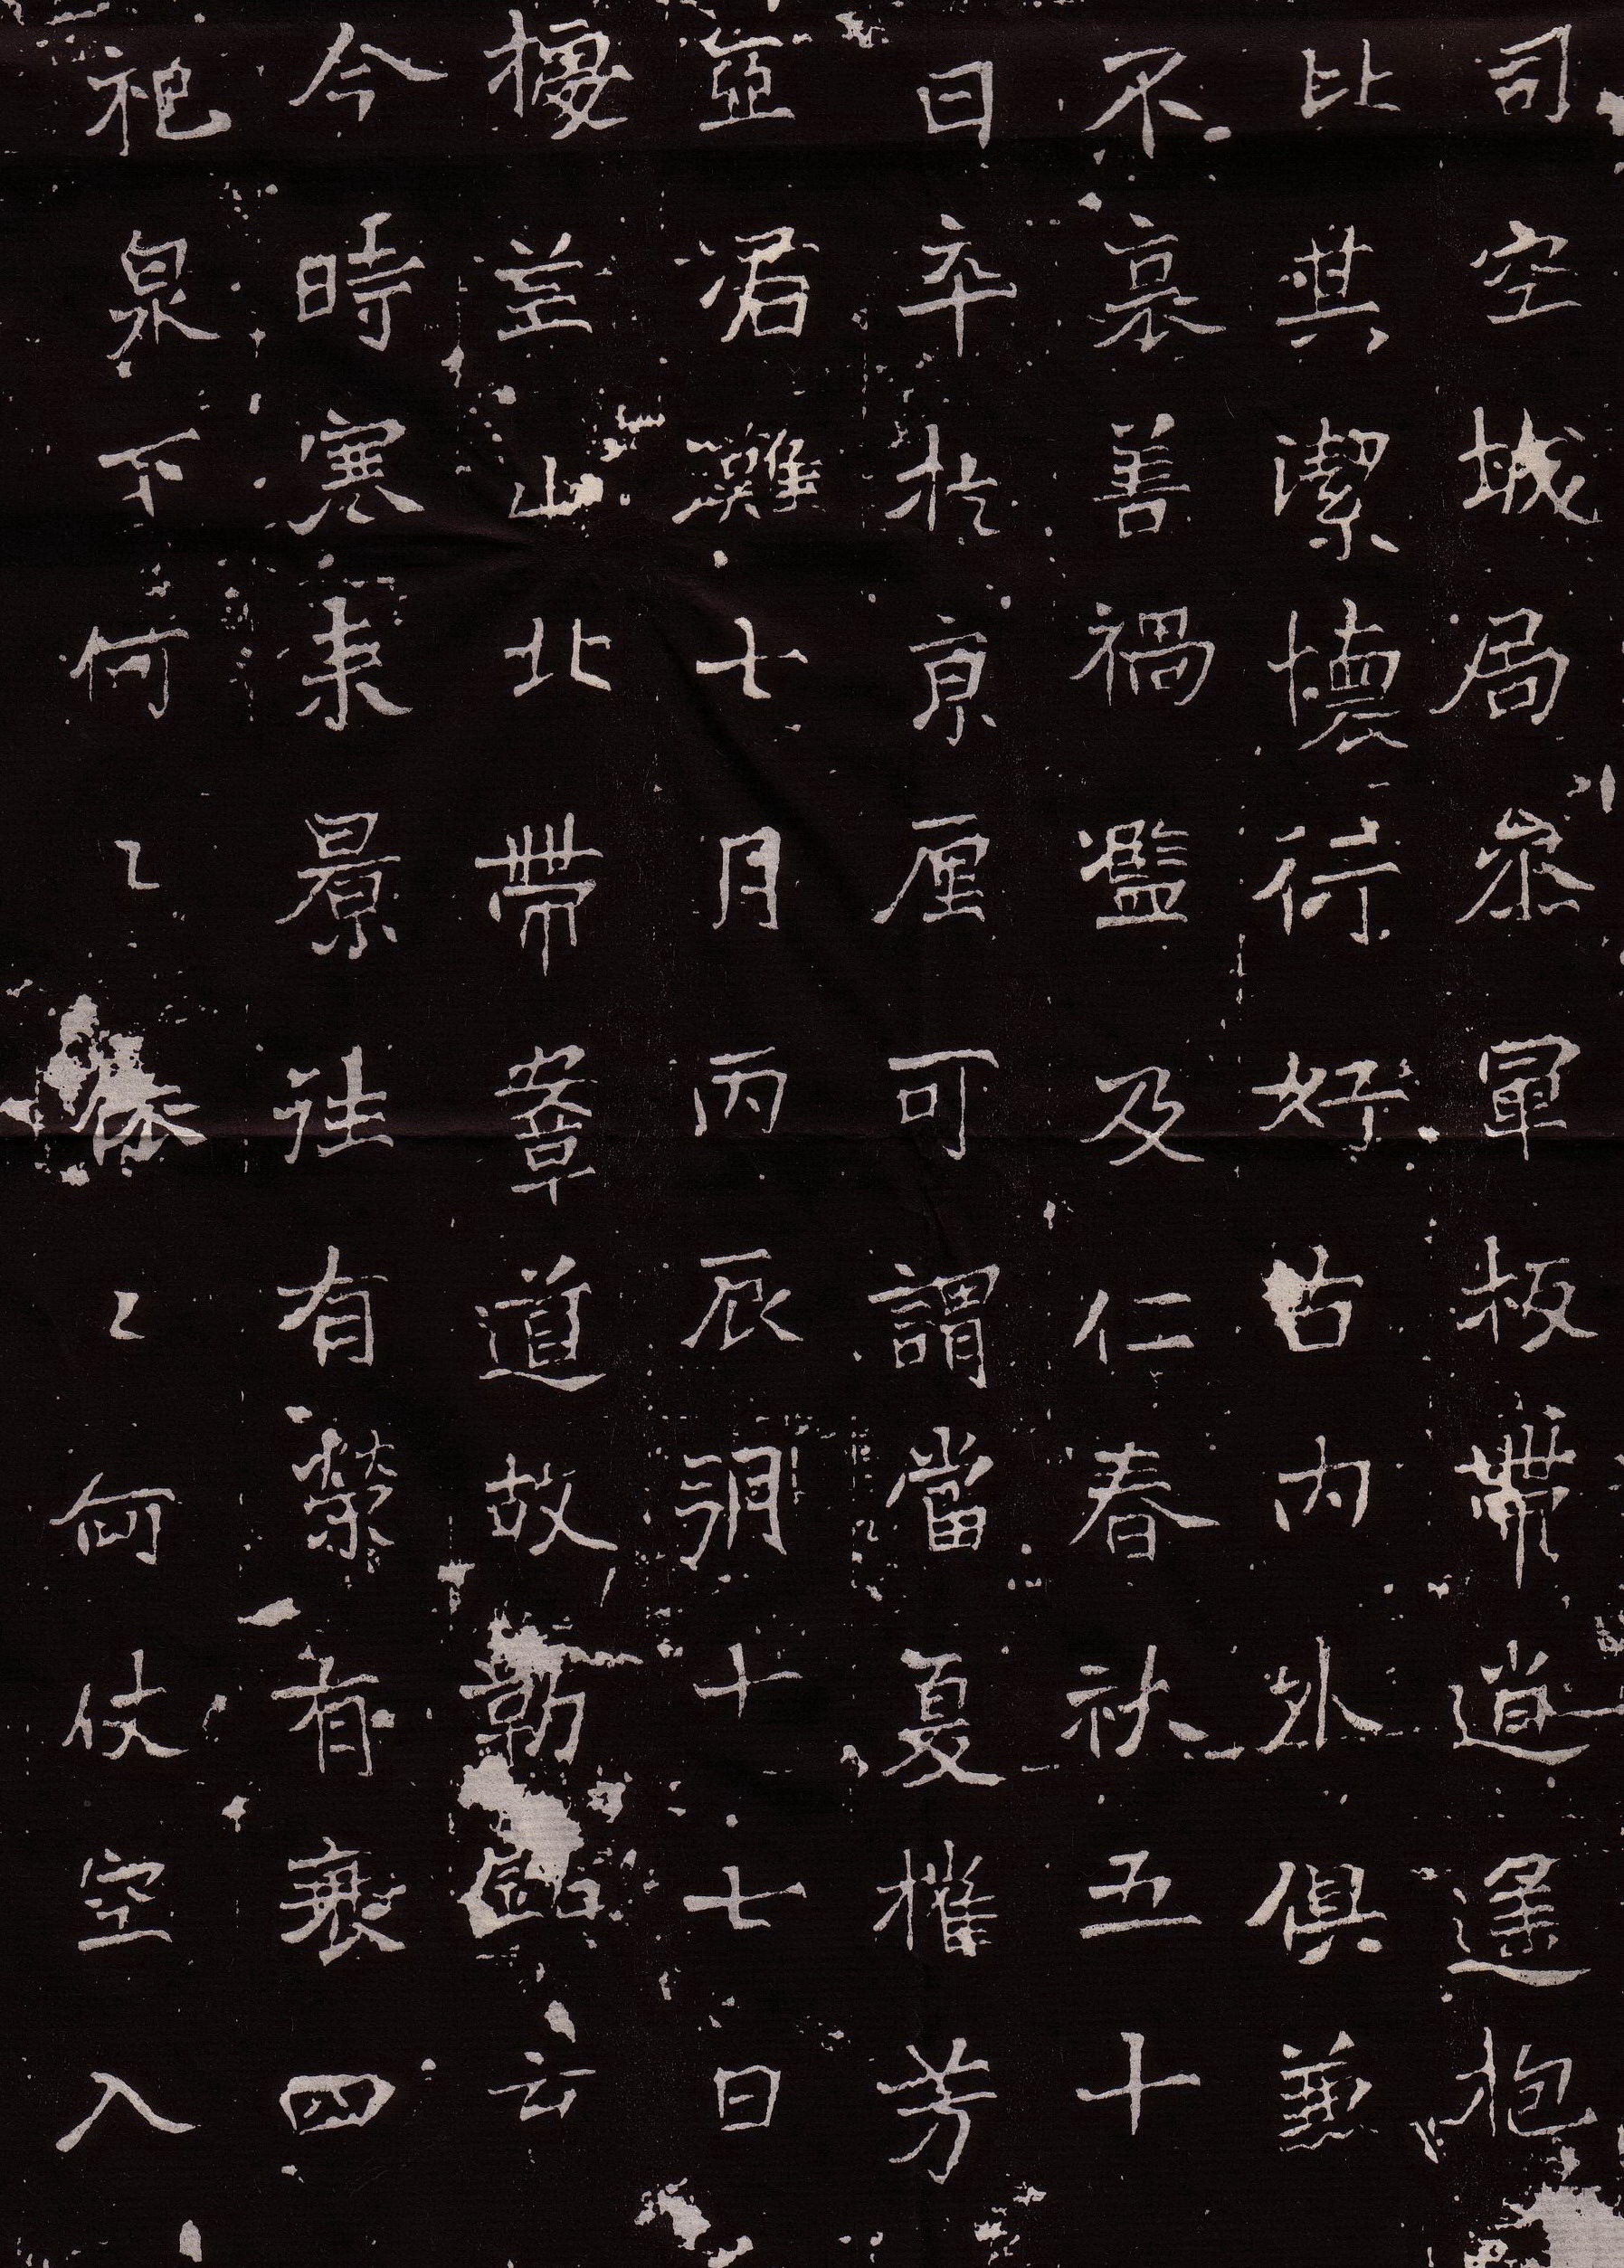 司空城局參軍板帶道遙抱
比其潔懷行好古內外俱兼
不哀善禍濫及仁春秋五十
曰卒於京厘可謂當夏摧芳
亟涒灘七月丙辰朔十七日
㯱芒山北帶臺道故勒銘云
今時寒来景往有榮有衰四
祀泉下何〻休〻何仗空入